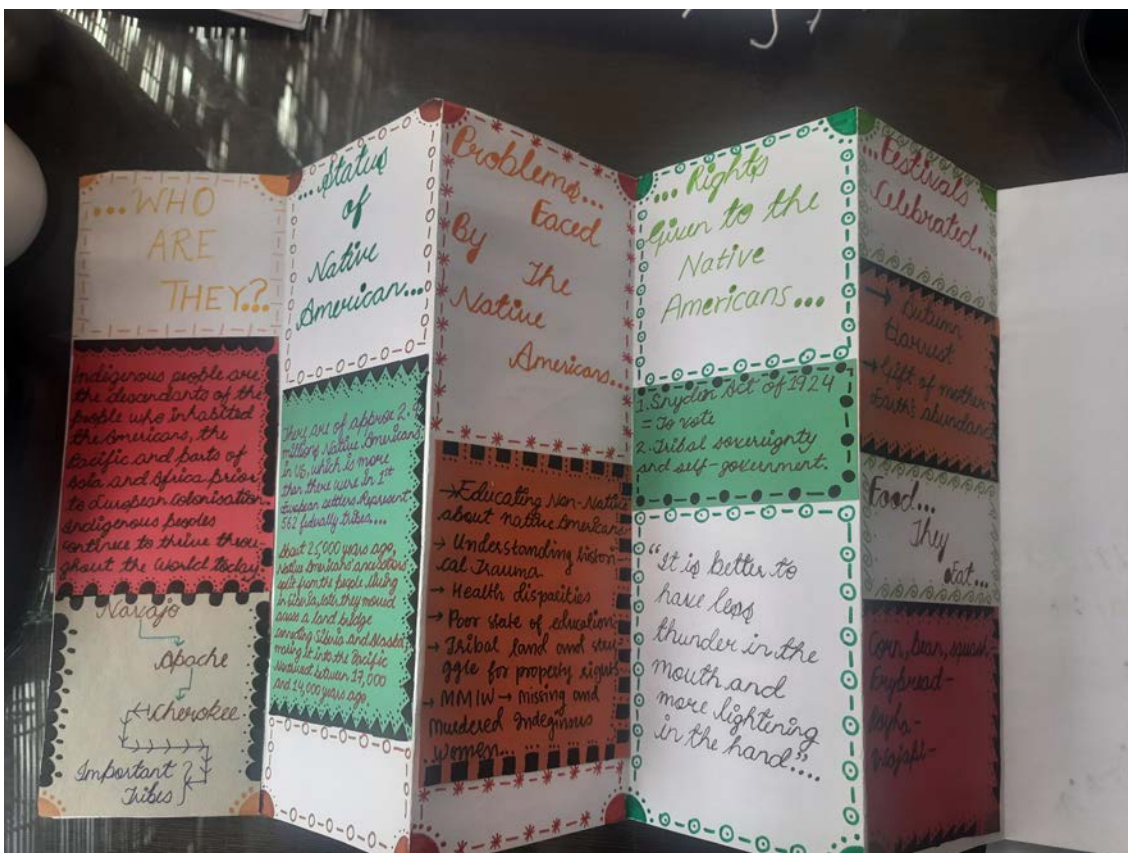 ...WHO
ARE
THEY?...
Indigenous people are
the descendants of the
people who inhabited
the Americans, the
Pacific and parts of
Asia and Africa prior
to European colonisation.
Indigenous peoples
continue to thrive throu-
ghout the world today
Navajo
Apache
Cherokee
Important
Tribes
...Status
of
Native
American...
There are of approx 2.9
million Native Americans
in US, which is more
than there were in 1st
European settlers. Represent
562 federally tribes...
About 25,000 years ago,
Native Americans' ancestors
split from the people living
in Siberia, later they moved
across a land bridge
connecting Siberia and Alaska,
making it into the Pacific
Northwest between 17,000
and 14,000 years ago.
Problems...
Faced
By
The
Native
Americans...
→ Educating Non-Native
about native Americans
→ Understanding histori-
cal Trauma
→ Health disparities
→ Poor state of education
→ Tribal land and stru
ggle for property rights
→ MMIW → missing and
murdered Indeginous
women...
... Rights
Given to the
Native
Americans...
1. Snyden Act of 1924
= To vote
2. Tribal sovereignty
and self-government.
"It is better to
have less
thunder in the
mouth and
more lightening
in the hand"....
...Festivals
Celebrated...
→ Autumn
Harvest
→ Gift of mother
Earth's abundance
Food...
They
Eat...
Corn, bean, squash-
Frybread-